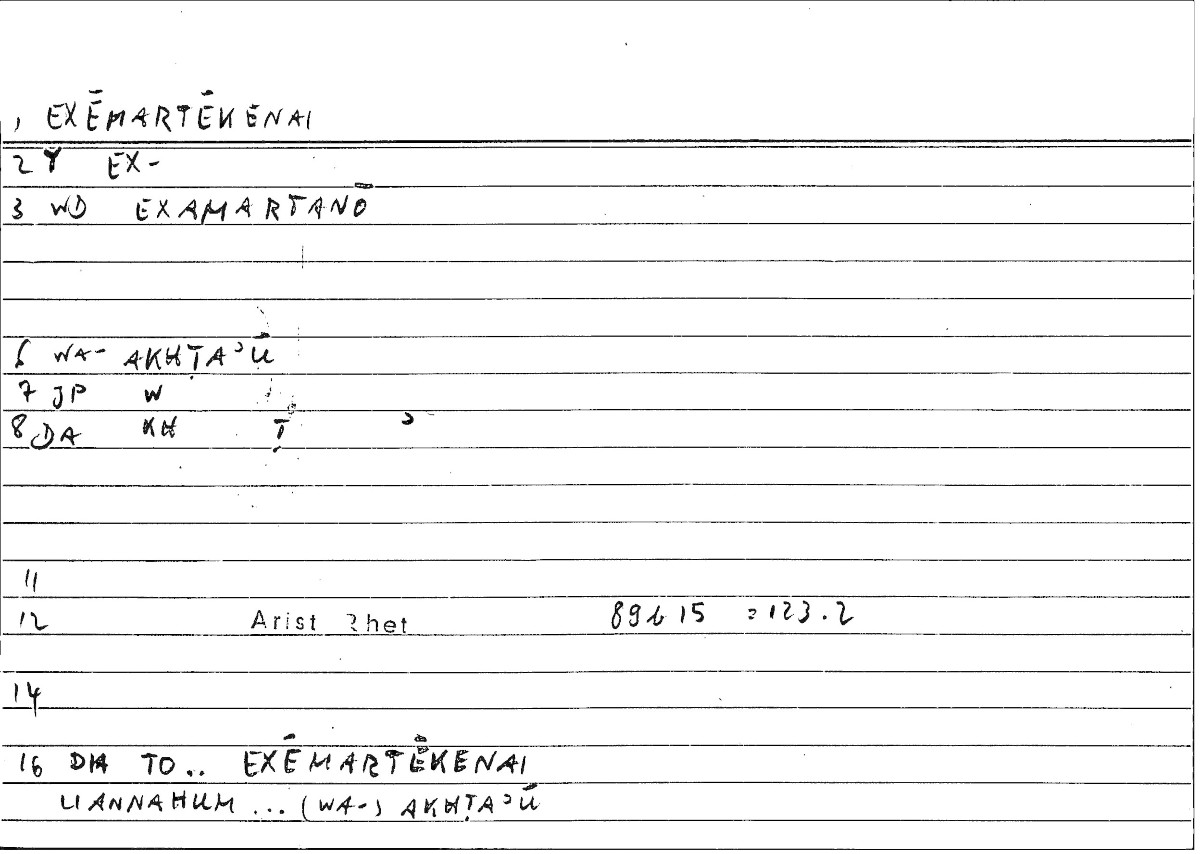 1 EXĒMARTĒKENAI
2 Y EX-
3 WD EXAMARTANŌ
6 WA- AKHṬAʾŪ
7 JP W
8 DA KH Ṭ ʾ
11
12 Arist Rhet 89b15 =123.2
14
16 DIA TO.. EXĒMARTĒKENAI
LIANNAHUM ... (WA-) AKHṬAʾŪ